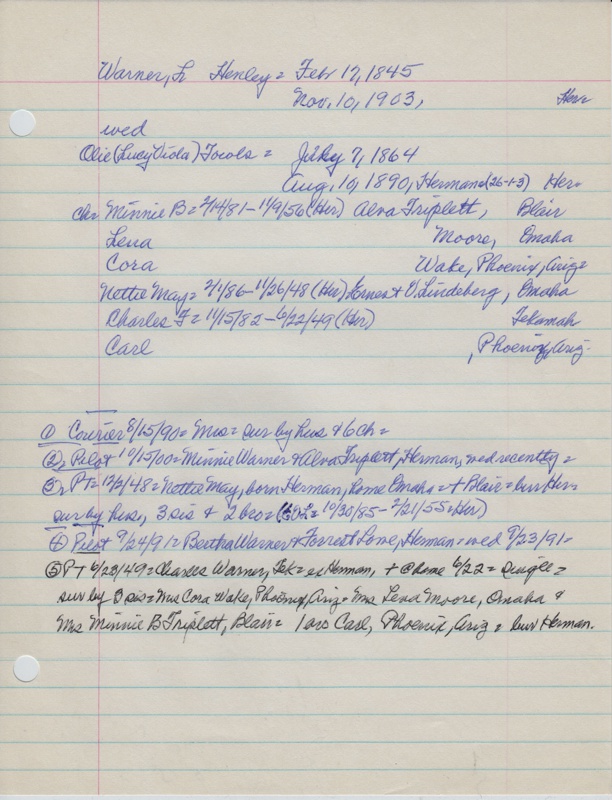 Warner, Lr Henley = Febr 17, 1845
Nov. 10, 1903, Her=
wed
Olie (Lucy Viola) Fowls = July 7, 1864
Aug. 10, 1890, Herman (26-1-3) Her=
chr Minnie B = 2/14/81 - 11/9/56 (Her) Alva Triplett, Blair
Lena Moore, Omaha
Cora Wake, Phoenix, Ariz=
Nettie May = 2/1/86 - 11/26/48 (Her) Ernest V. Lindeberg, Omaha
Charles F = 11/15/82 - 6/22/49 (Her) Tekamah
Carl , Phoenix, Ariz-
① Courier 8/15/90 = Mrs = sur by hus & 6 ch =
② Pilot 10/15/00 = Minnie Warner & Alva Triplett, Herman, wed recently =
③ PT = 12/2/48 = Nettie May, born Herman, home Omaha = + Blair = bur Her=
sur by hus, 3 sis & 2 bro = ( = 10/30/85 - 2/21/55 = Her)
④ Pilot 9/24/91 = Bertha Warner & Forrest Lowe, Herman = wed 9/23/91 =
⑤ PT 6/23/49 = Charles Warner, Tek = ex Herman, + @ home 6/22 = single =
sur by 3 sis = Mrs Cora Wake, Phoenix, Ariz = Mrs Lena Moore, Omaha &
Mrs Minnie B Triplett, Blair = 1 bro Carl, Phoenix, Ariz = bur Herman.